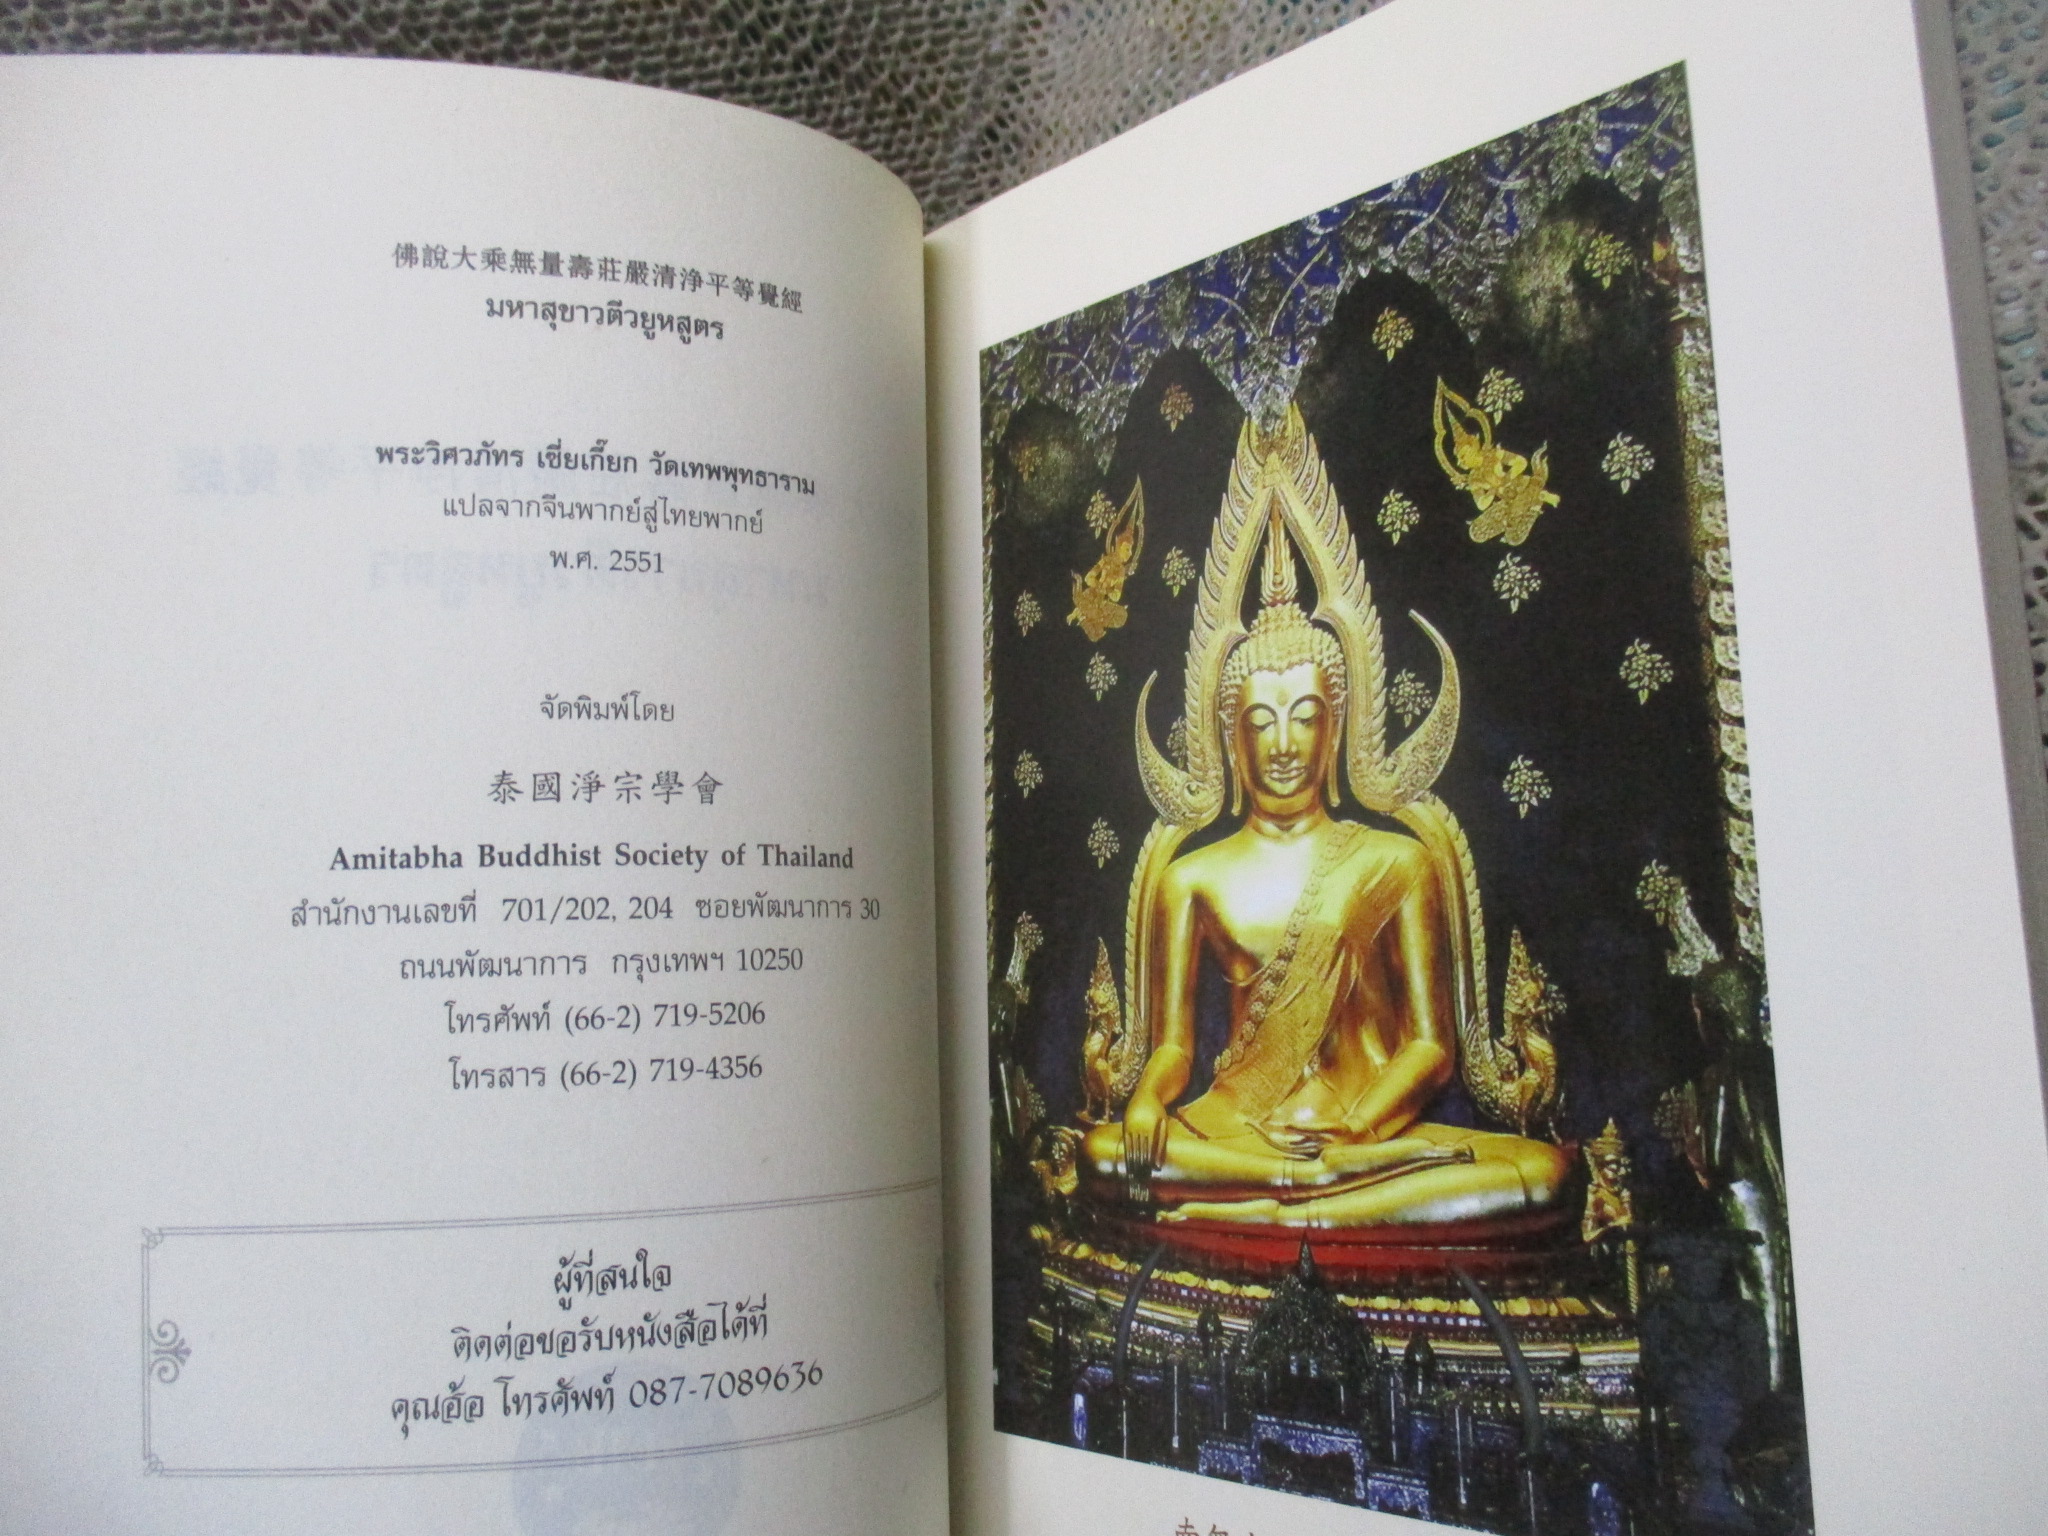 佛說大乘無量壽莊嚴清淨平等覺經
มหาสุขาวตีวยูหสูตร
พระวิศวภัทร เซี่ยเกี๊ยก วัดเทพพุทธาราม
แปลจากจีนพากย์สู่ไทยพากย์
พ.ศ. 2551
จัดพิมพ์โดย
泰國淨宗學會
Amitabha Buddhist Society of Thailand
สำนักงานเลขที่ 701/202, 204 ซอยพัฒนาการ 30
ถนนพัฒนาการ กรุงเทพฯ 10250
โทรศัพท์ (66-2) 719-5206
โทรสาร (66-2) 719-4356
ผู้ที่สนใจ
ติดต่อขอรับหนังสือได้ที่
คุณฮ้อ โทรศัพท์ 087-7089636